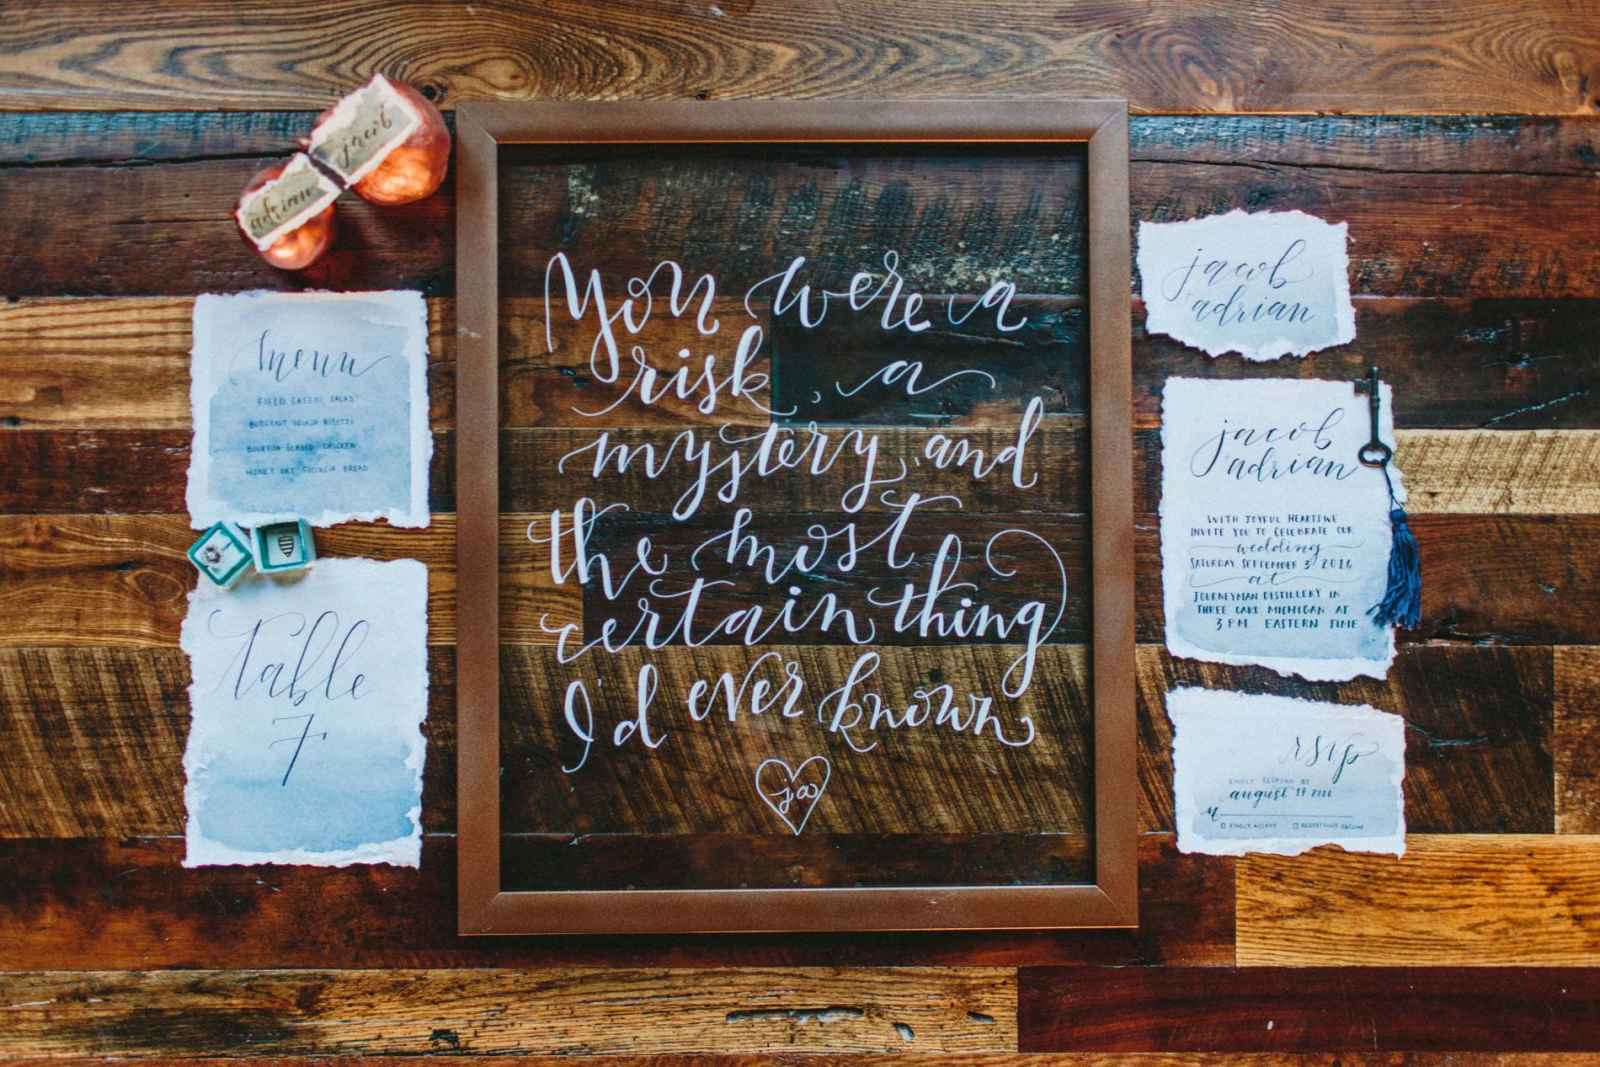 jacob
adrian
menu
FIELD GREENS SALAD
BUTTERNUT SQUASH RISOTTO
BOURBON GLAZED CHICKEN
HONEY OAT FOCACCIA BREAD
Table
7
You were a
risk, a
mystery, and
the most
certain thing
I'd ever known
jacob
adrian
jacob
adrian
WITH JOYFUL HEARTS WE
INVITE YOU TO CELEBRATE OUR
wedding
SATURDAY SEPTEMBER 3 2016
at
JOURNEYMAN DISTILLERY IN
THREE OAKS MICHIGAN AT
3 PM EASTERN TIME
rsvp
KINDLY RESPOND BY
august 2016
M